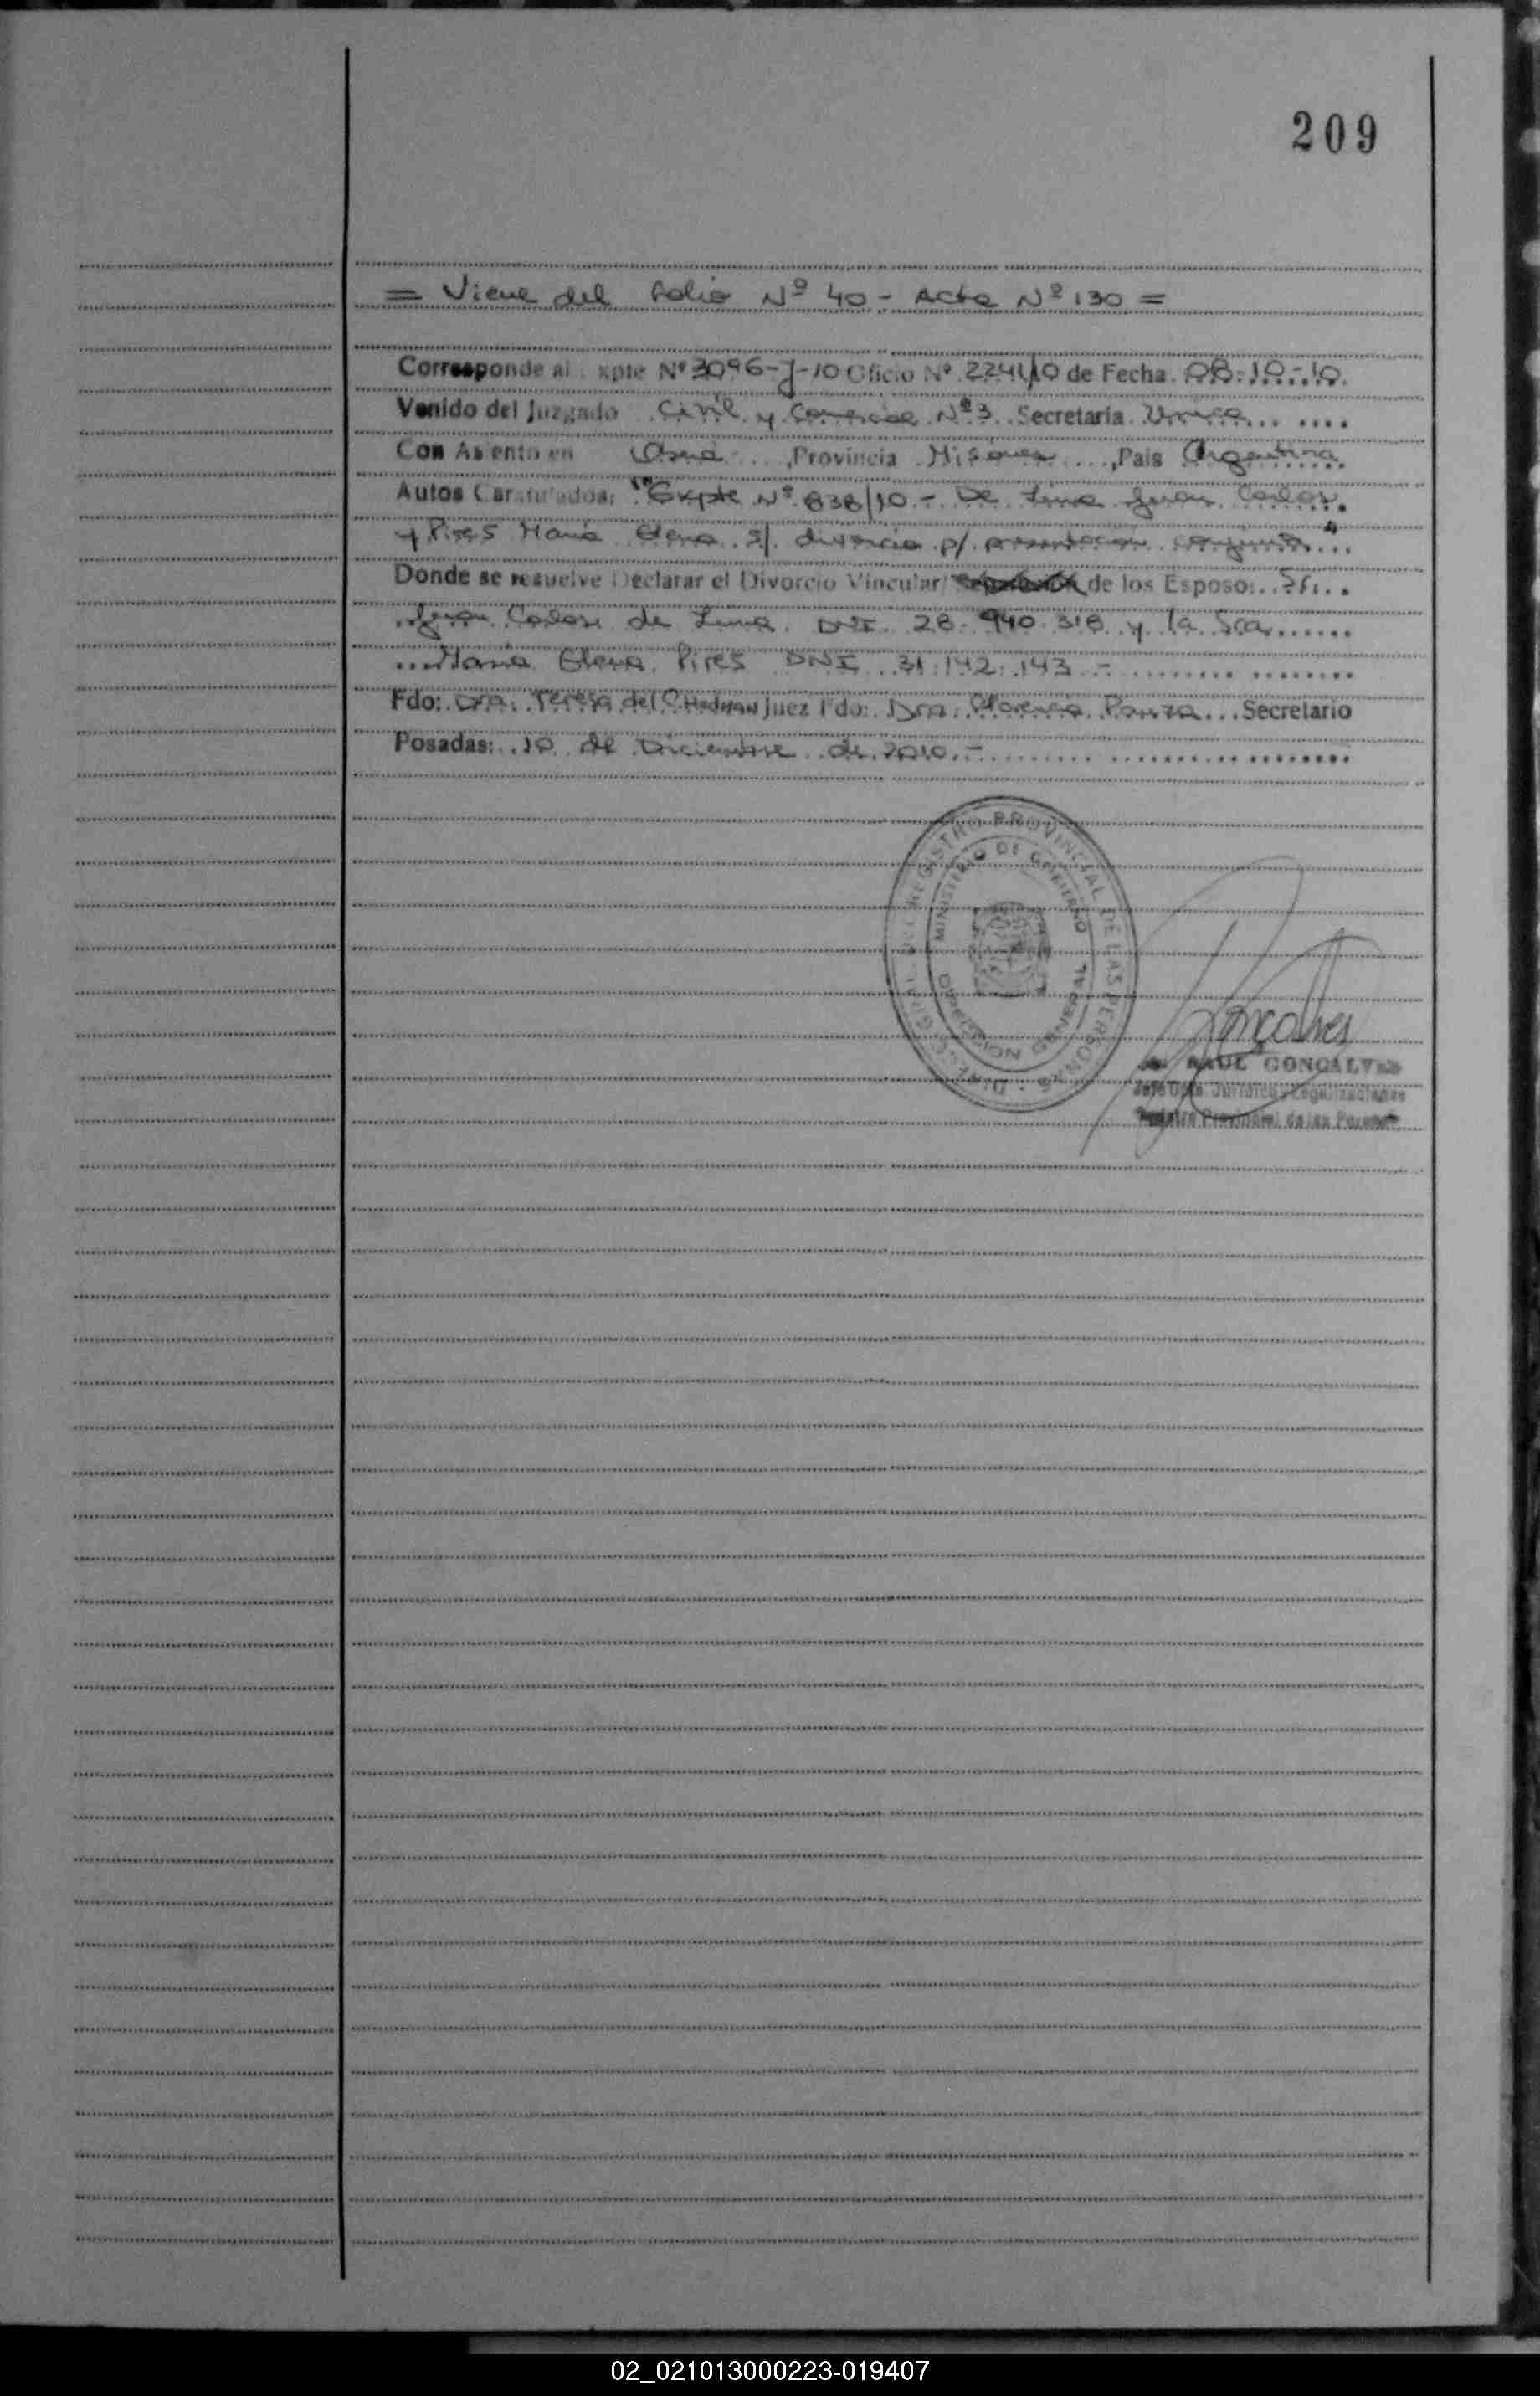 209
= Viene del folio Nº 40 - Acta Nº 130 =
Corresponde al Expte Nº 3096-J-10 Oficio Nº 2241/10 de Fecha 08-10-10.
Venido del Juzgado Civil y Comercial Nº 3 Secretaría Única
Con Asiento en Oberá, Provincia Misiones, País Argentina.
Autos Caratulados: "Expte Nº 838/10.- De Lima Juan Carlos
y Pires María Elena s/ divorcio p/ presentación conjunta"
Donde se resuelve Declarar el Divorcio Vincular de los Esposos: Sr.
Juan Carlos de Lima DNI 28.940.318 y la Sra
María Elena Pires DNI 31.142.143 -
Fdo: Dra. Teresa del C. Hedman Juez Fdo: Dra. Florencia Secretario
Posadas: 10 de Diciembre de 2010.-
REGISTRO PROVINCIAL DE LAS PERSONAS
MINISTERIO DE GOBIERNO
DIRECCION GENERAL
Gonçalves
RAUL GONCALVES
Jefe Dpto. Jurídico y Legalizaciones
Registro Provincial de las Personas
02_021013000223-019407